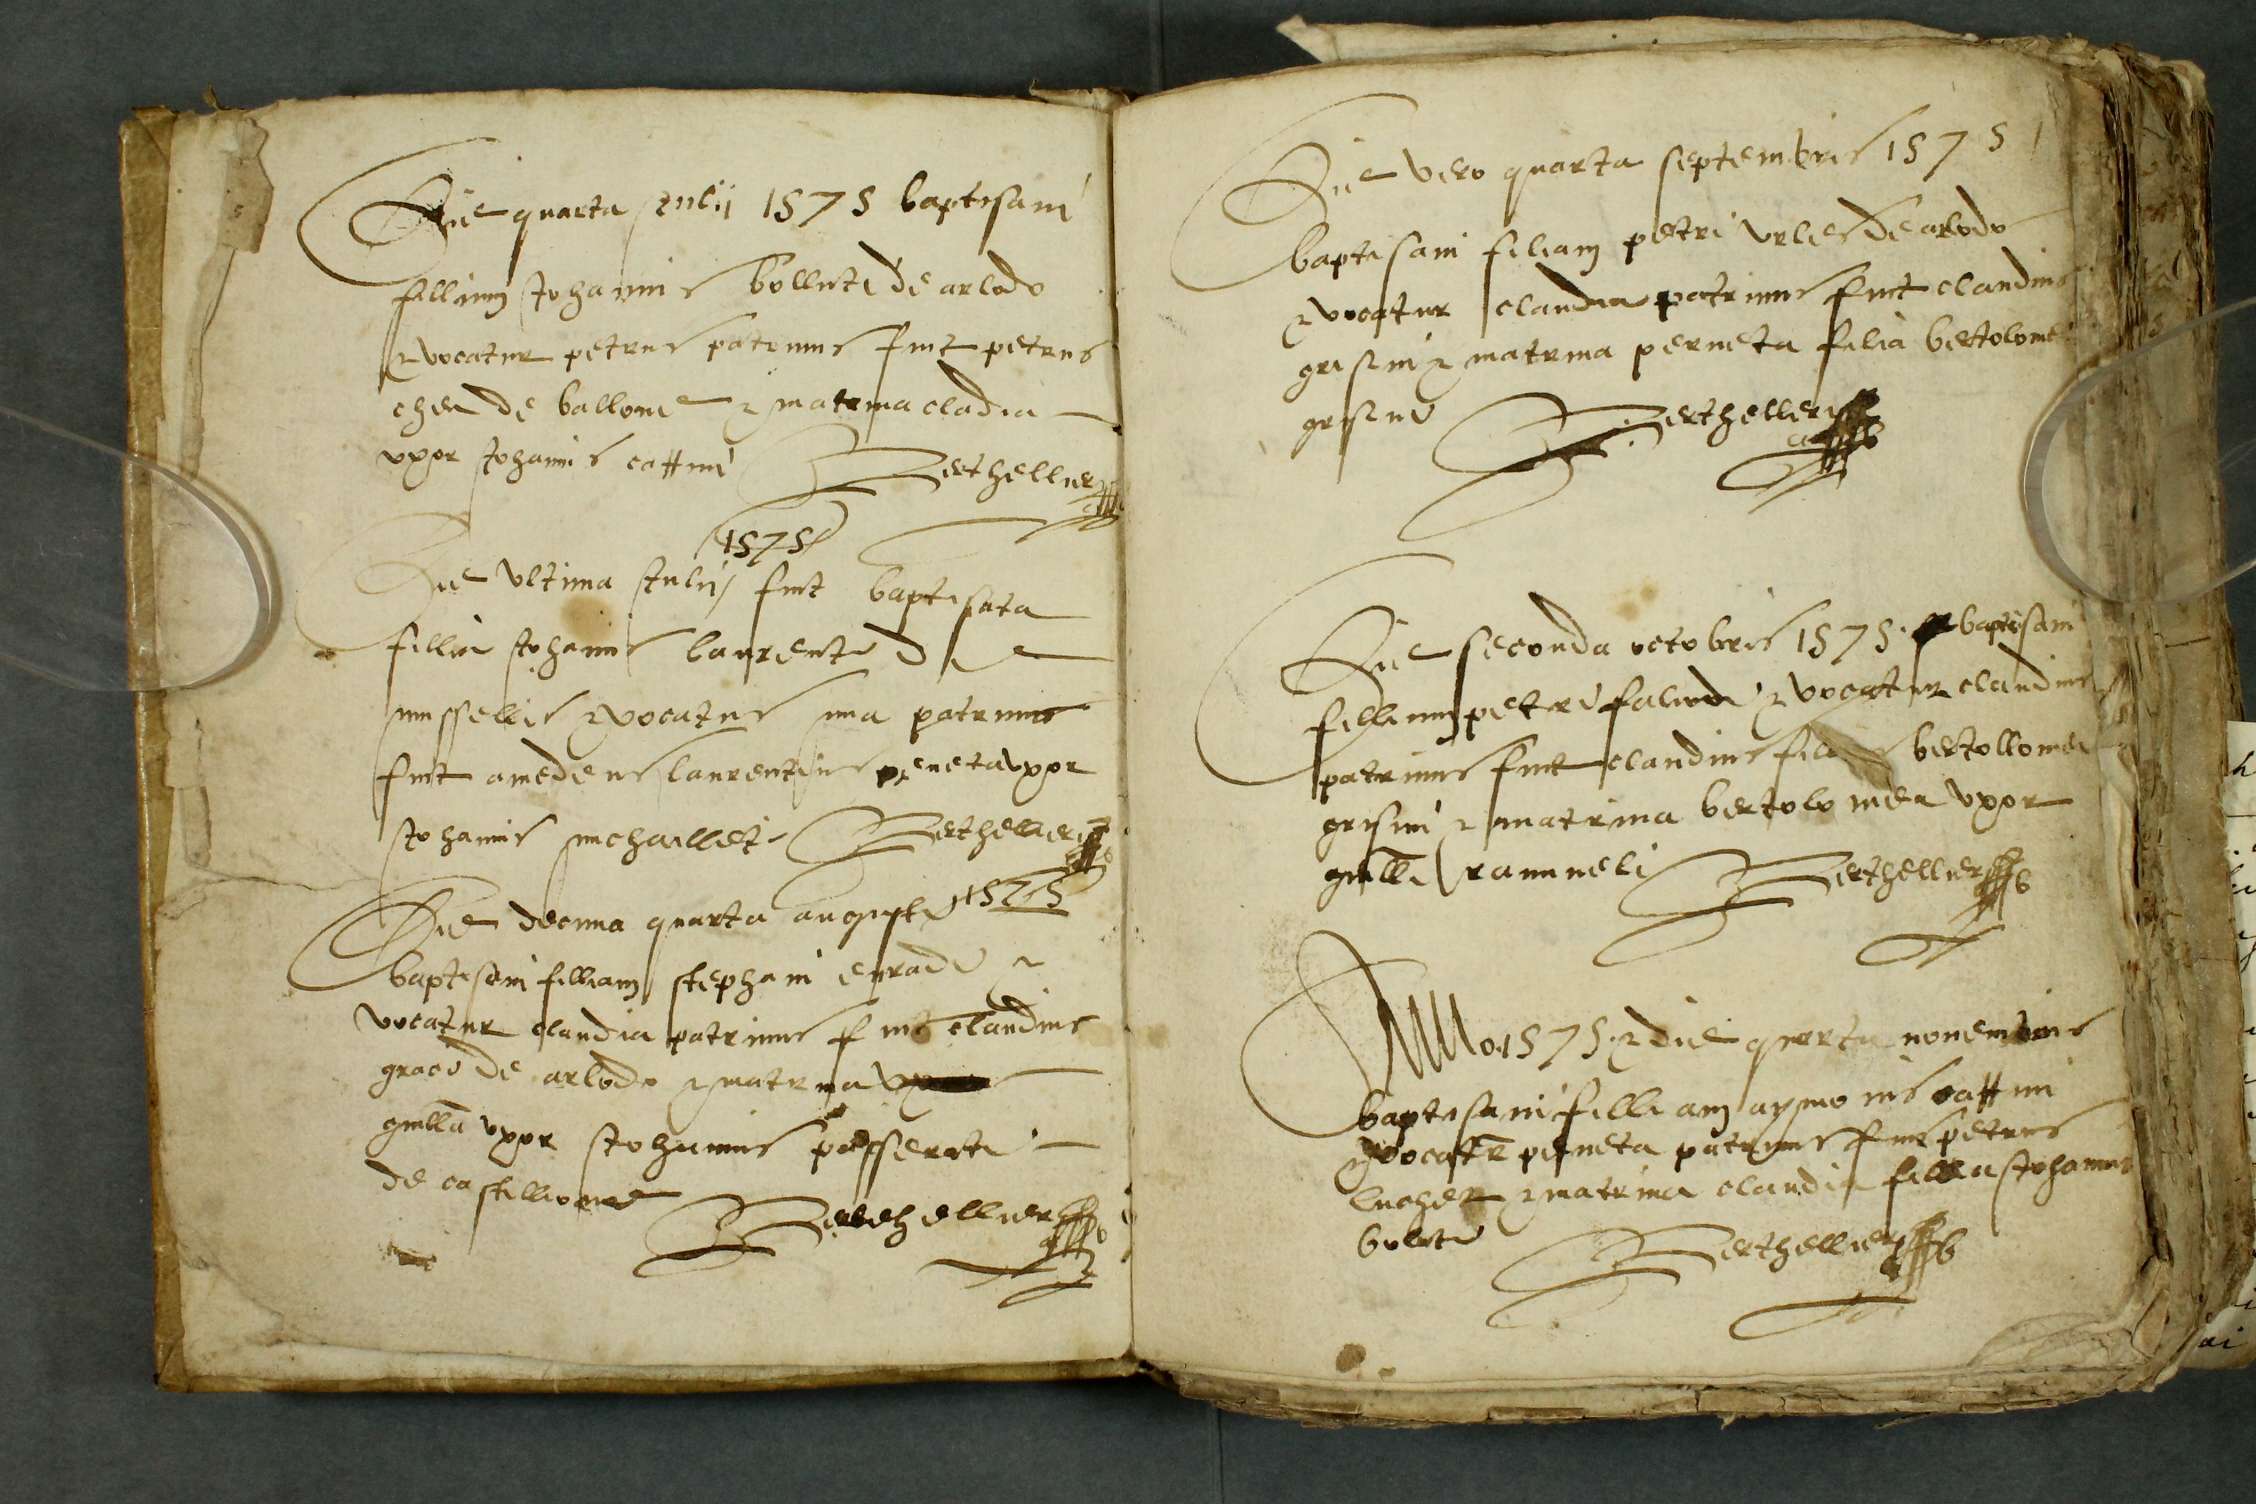 Die quarta Julij 1575 baptisavi
fillium Johannis bolleti de arlodo
& vocatur petrus patrinus fuit petrus
de ballone & matrina cladia
uxor Johannis cattini Berthellier
1575
Die ultima Julij fuit baptisata
fillia Johannis laurenti de
mussellis & vocatus una patrinus
fuit amedeus laurentius peneta uxor
Johannis michaillet Berthellier
Die decima quarta augusti 1575
baptisavi filliam stephani &
vocatur claudia patrinus fuit claudius
de arlodo & matrina
guilla uxor Johannis passerati
de castillione Berthellier
Die vero quarta septembris 1575
baptisavi filiam petri de arlodo
& vocatur claudia patrinus fuit claudius
grisini & matrina perneta filia bertolomei
grisini Berthellier
Die seconda octobris 1575 baptisavi
fillium petri & vocatur claudius
patrinus fuit claudius bertollomei
grisini & matrina bertolomea uxor
guilli ramueli Berthellier
Anno 1575 & die quarta novembris
baptisavi filliam aymonis cattini
& vocatr perneta patrinus fuit petrus
& matrina claudia fillia Johannis
boleti Berthellier